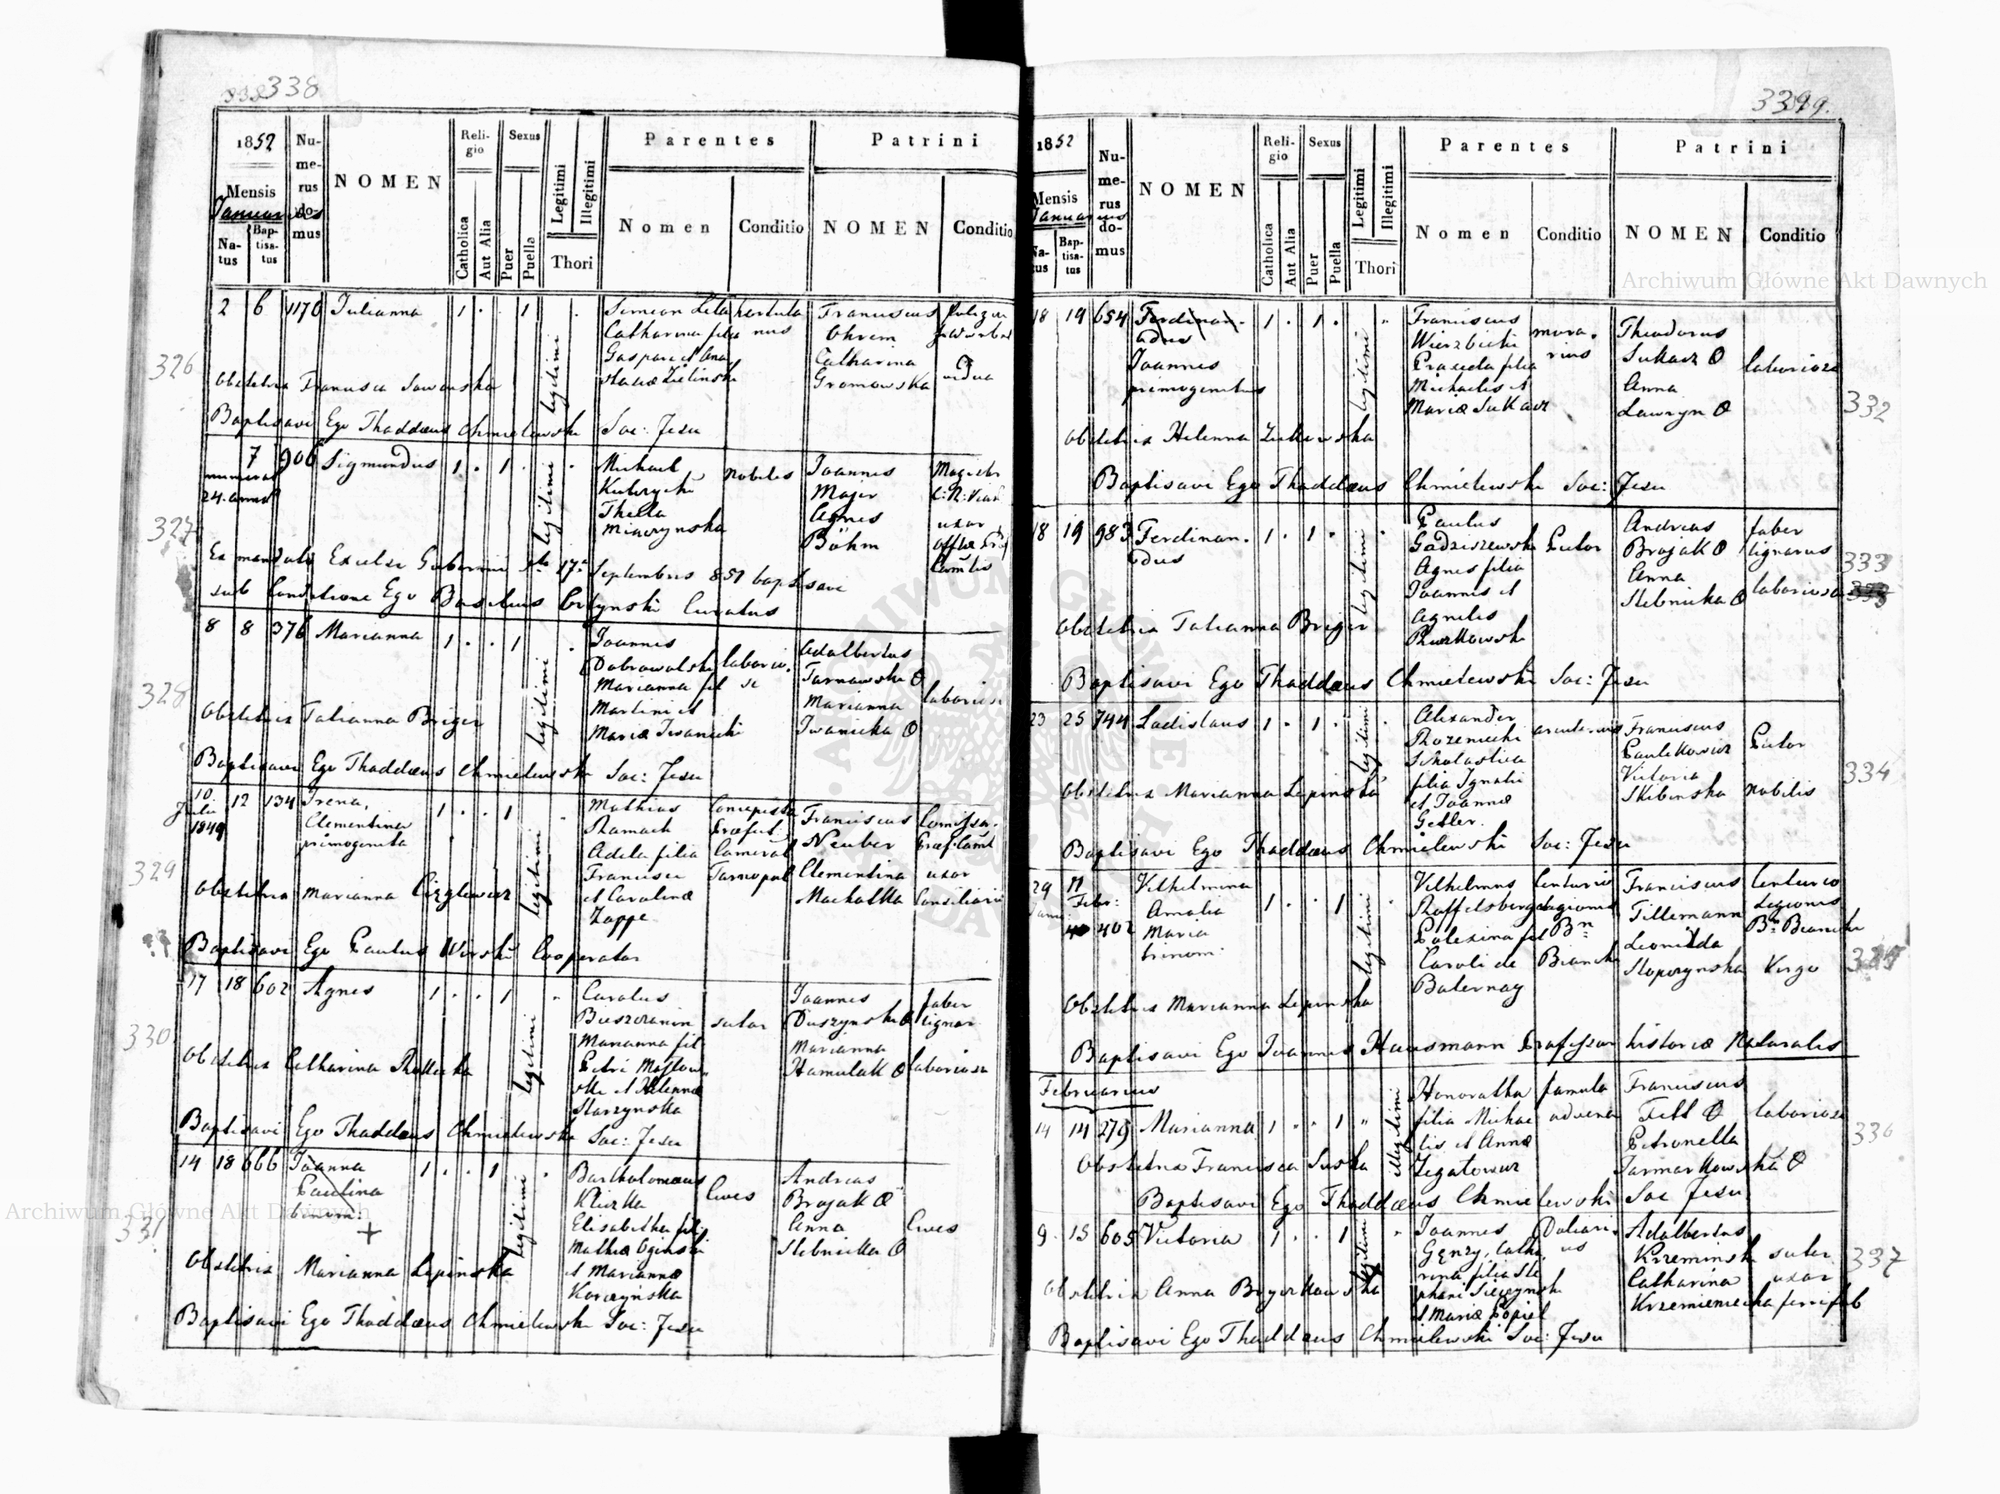 338
1852
Mensis
Januarius
Natus
Baptisatus
Numerus domus
NOMEN
Religio
Catholica
Aut Alia
Sexus
Puer
Puella
Legitimi
Illegitimi
Thori
Parentes
Nomen
Conditio
Patrini
NOMEN
Conditio
326
2 6 1176 Julianna 1 . . 1 legitimi .
Simeon
Catharina filia
Gaspari et Ana
stasiæ Zielinski
Franciscus
Ohrem
Catharina
Gromowska
vidua
Obstetrix Francisca Sawauska
Baptisavi Ego Thaddæus Chmielewski Soc: Jesu
327
7 906 Sigmundus 1 . 1 . legitimi .
24. annos
Michael
Thecla
Minczynska
nobilis
Joannes
Majer
Agnes
Böhm
uxor
Ex mandato Excelsi Gubernii dto 17a Septembris 851 baptisavi
sub Conditione Ego Basilius Curatus
328
8 8 376 Marianna 1 . . 1 legitimi .
Joannes
Dobrowolski
Marianna fil
Martini et
Mariæ Iwanicki
laborio
se
Adalbertus
Tarnawski O
Marianna
Iwanicka O
laboriosi
Obstetrix Tatianna Briger
Baptisavi Ego Thaddæus Chmielewski Soc: Jesu
329
10 Julii 1849 12 134 Irena, 1 . . 1 legitimi
Clementina
primogenita
Mathias
Ramach
Adela filia
Francisci
et Carolinæ
Zappe
Concipista
Præfect.
Cameral
Tarnopol
Franciscus
Neuber
Clementina
Machalka
Comissar.
Præf: Caml
uxor
Consiliarii
Obstetrix Marianna Cizglewicz
Baptisavi Ego Paulus Wirski Cooperator
330
17 18 602 Agnes 1 . . 1 legitimi
Carolus
Marianna fil
Petri Masłow
ski et Helennæ
Starzynska
sutor
Joannes
Duszynski O
Marianna
Hamulak O
faber
lignar.
laboriosa
Obstetrix Catharina
Baptisavi Ego Thaddæus Chmielewski Soc: Jesu
331
14 18 666 Joanna 1 . . 1 legitimi .
Paulina
binom:
+
Bartholomæus
Kliszka
Elisabetha fil:
Mathiæ Oginski
et Mariannæ
Korczynska
Cives
Andreas
Brojak O
Anna
Stebnicka O
Cives
Obstetrix Marianna Lipinska
Baptisavi Ego Thaddæus Chmielewski Soc: Jesu
339
1852
Mensis
Januarius
Natus
Baptisatus
Numerus domus
NOMEN
Religio
Catholica
Aut Alia
Sexus
Puer
Puella
Legitimi
Illegitimi
Thori
Parentes
Nomen
Conditio
Patrini
NOMEN
Conditio
332
18 19 654 Ferdinan- 1 . 1 . legitimi
dus
Joannes
primogenitus
Franciscus
Wierzbicki
Praxeda filia
Michaelis et
Mariæ Sukacz
mura-
rius
Theodorus
Sukacz O
Anna
Lawryn O
laboriosi
Obstetrix Helenna Zukowska
Baptisavi Ego Thaddæus Chmielewski Soc: Jesu
333
333
18 19 983 Ferdinan- 1 . 1 . legitimi .
dus
Paulus
Gadziszewski
Agnes filia
Joannis et
Agnetis
Piutor
Andreas
Brojak O
Anna
Stebnicka O
faber
lignarius
laboriosa
Obstetrix Tatianna Briger
Baptisavi Ego Thaddæus Chmielewski Soc: Jesu
334
23 25 744 Ladislaus 1 . 1 . legitimi
Alexander
Rozeniecki
Scholastica
filia Ignatii
et Joannæ
Getler.
Franciscus
Paulikowicz
Victoria
Skibinska
Pictor
nobilis
Obstetrix Marianna Lipinska
Baptisavi Ego Thaddæus Chmielewski Soc: Jesu
335
29 11 Febr: 402 Vilhelmina 1 . . 1 legitimi
Amalia
Maria
trinom:
Vilhelmus
Raffelsberger
Caroli de
Baternay
Centurio
Legionis
Bn
Bianchi
Franciscus
Tillemann
Leonilda
Stopczynska
Centurio
Legionis
Bn Bianchi
Virgo
Obstetrix Marianna Lipinska
Baptisavi Ego Joannes Hausmann Professor historiæ Naturalis
Februarius
336
14 14 279 Marianna 1 . . 1 illegitimi
Honoratha
filia Michae
lis et Annæ
Zegatowicz
famula
advena
Franciscus
Fitt O
Petronella
Jarmarkowska O
laboriosi
Obstetrix Francisca Suska
Baptisavi Ego Thaddæus Chmielewski Soc Jesu
337
9 15 605 Victoria 1 . . 1 legitimi
Joannes
Genzy, Catha
rina filia Ste
phani
et Mariæ Popiel
Doliari-
us
Adalbertus
Krzeminski
Catharina
Krzemieniecka
sutor
uxor
Obstetrix Anna
Baptisavi Ego Thaddæus Chmielewski Soc: Jesu
Archiwum Główne Akt Dawnych
Archiwum Główne Akt Dawnych
ARCHIWUM GŁÓWNE AKT DAWNYCH